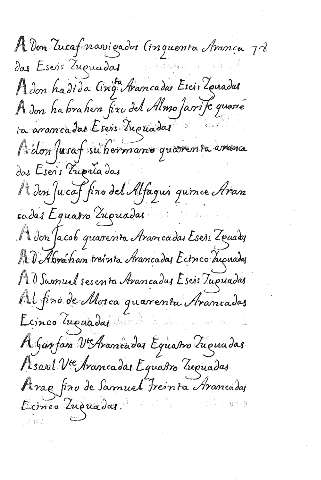 A Don Zucaf navigados Cinquenta Aranca
das Eseis Zuguadas
A don hadida Cinqta Arancadas Eseiz Zguadas
A don habrahen fixo del Almoxarife quare
ta arancadas Eseis Zuguadas
A don Jusaf su hermano quarenta aranca
das Eseis Zuguadas
A don Jucaf fixo del Alfaqui quince Aran
cadas Equatro Zuguadas
A don Jacob quarenta Arancadas Eseis Zguadas
A D Abrahan treinta Arancadas Ecinco Zuguadas
A D Samuel sesenta Arancadas Eseis Zuguadas
Al fixo de Mosca quarenta Arancadas
Ecinco Zuguadas
A Vte Arancadas Equatro Zuguadas
Asaul Vte Arancadas Equatro Zuguadas
Arag fixo de Samuel Treinta Arancadas
Ecinco Zuguadas.